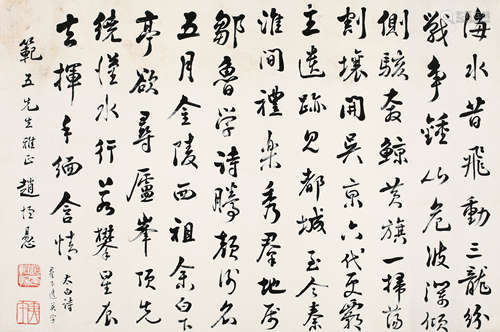 海水昔飛動三龍紛
戰爭鍾山危波深傾
側駭奔鯨黃旗一掃蕩
割壤開吳京六代更霸
主遺跡見都城至今秦
淮間禮樂秀羣地扇
鄒魯學詩騰顏謝名
五月金陵西祖余白下
亭欲尋廬峯頂先
繞漢水行若攀星辰
去揮手緬含情 太白詩
羣下遺英字
範五先生雅正 趙恒惖